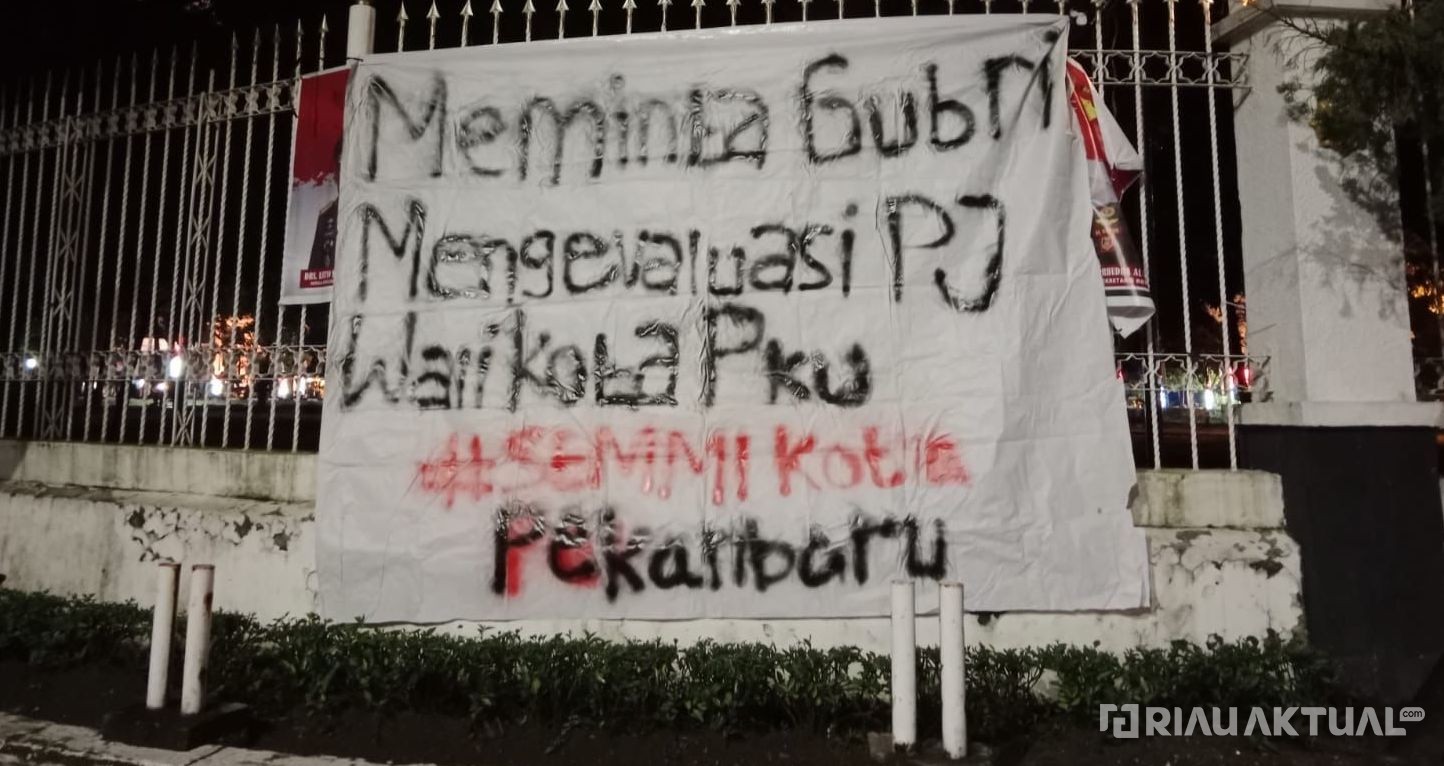 Meminta Gubri
Mengevaluasi PJ
Wali Kota Pku
#SEMMI Kota
Pekanbaru
RIAUAKTUAL.com